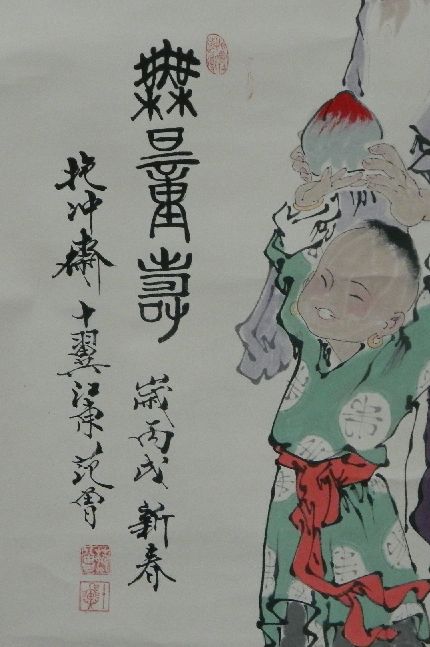 無量壽
歲丙戌新春
抱冲齋十翼江東范曾